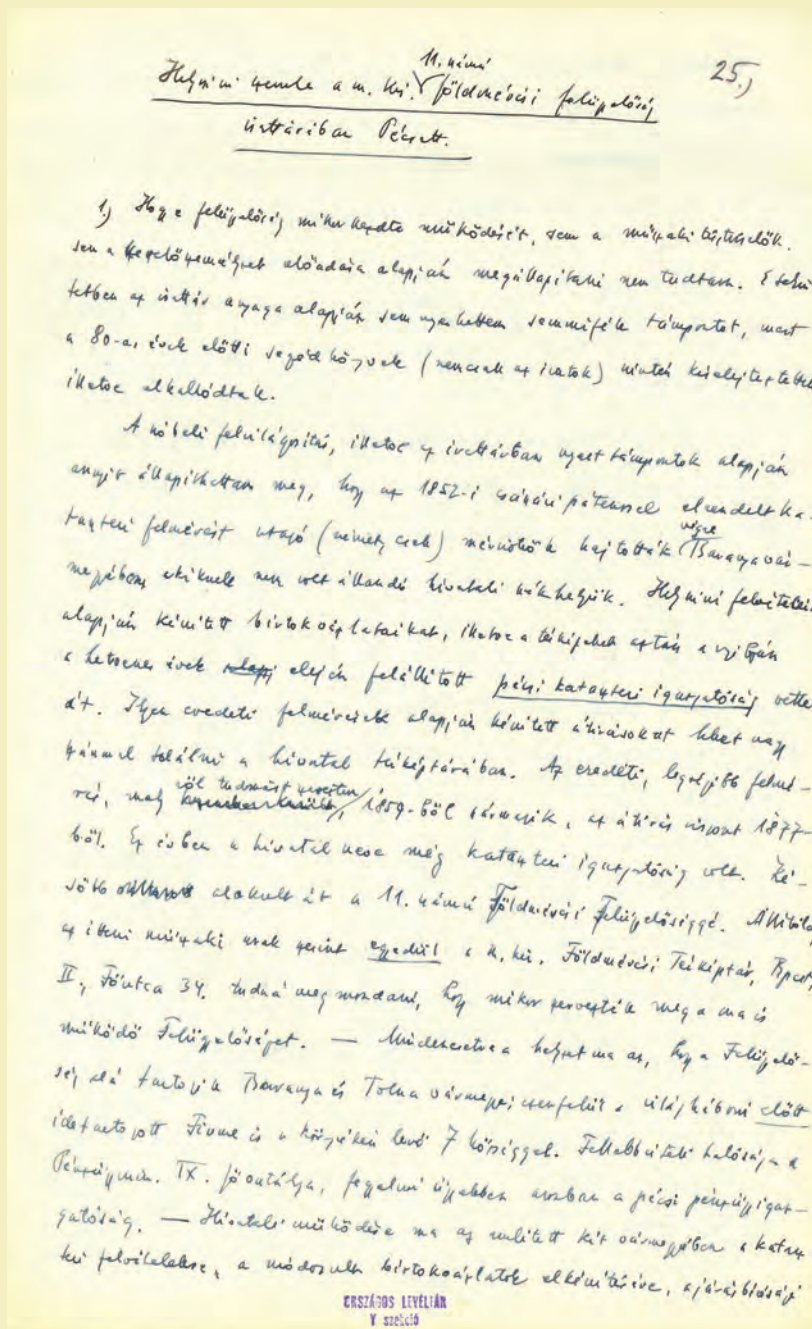 25.)
11. számú
Helyszíni szemle a m. kir. földmérési felügyelőség
irattárában Pécsett.
1.) Hogy a felügyelőség mikor kezdte működését, sem a műszaki tisztviselők,
sem a kezelőszemélyzet előadása alapján megállapítani nem tudtam. E tekin-
tetben az irattár anyaga alapján sem nyerhettem semmiféle támpontot, mert
a 80-as évek előtti segédkönyvek (nemcsak az iratok) mintén kiselejteztettek
illetve elkallódtak.
A szóbeli felvilágosítás, illetve az irattárban nyert támpontok alapján
annyit állapíthattam meg, hogy az 1852-i császári pátenssel elrendelt ka-
taszteri felmérést utazó (német, cseh) mérnökök hajtották végre Baranyavár-
megyében, akiknek nem volt állandó hivatali székhelyük. Helyszíni felvételeik
alapján készített birtokvázlataikat, illetve a térképeket aztán a
a hetvenes évek elején felállított pécsi kataszteri igazgatóság vette
át. Ilyen eredeti felmérések alapján készített átírásokat lehet nagy
számmal találni a hivatal térképtárában. Az eredeti, legrégibb felmé-
rés, mely 1859-ből származik, az átírás viszont 1877-
ből. Ez évben a hivatal neve még kataszteri igazgatóság volt. Ké-
sőbb alakult át a 11. számú Földmérési Felügyelőséggé. Állítólag
az itteni műszaki urak szerint egyedül a m. kir. Földmérési Térképtár, Bpest,
II., Fő utca 34. tudná megmondani, hogy mikor szervezték meg a ma is
működő Felügyelőséget. — Mindenesetre a helyzet ma az, hogy a Felügyelő-
ség alá tartozik Baranya és Tolna vármegye, ezenfelül a világháború előtt
idetartozott Fiume is a környékén levő 7 községgel. Fellebbviteli hatósága a
Pénzügymin. IX. főosztálya, fegyelmi ügyekben azonban a pécsi pénzügyigaz-
gatóság. — Hivatali működése ma az említett két vármegyében a katasz-
teri felvételekre, a módosult birtokvázlatok elkészítésére, a járásbírósági
ORSZÁGOS LEVÉLTÁR
Y szekció